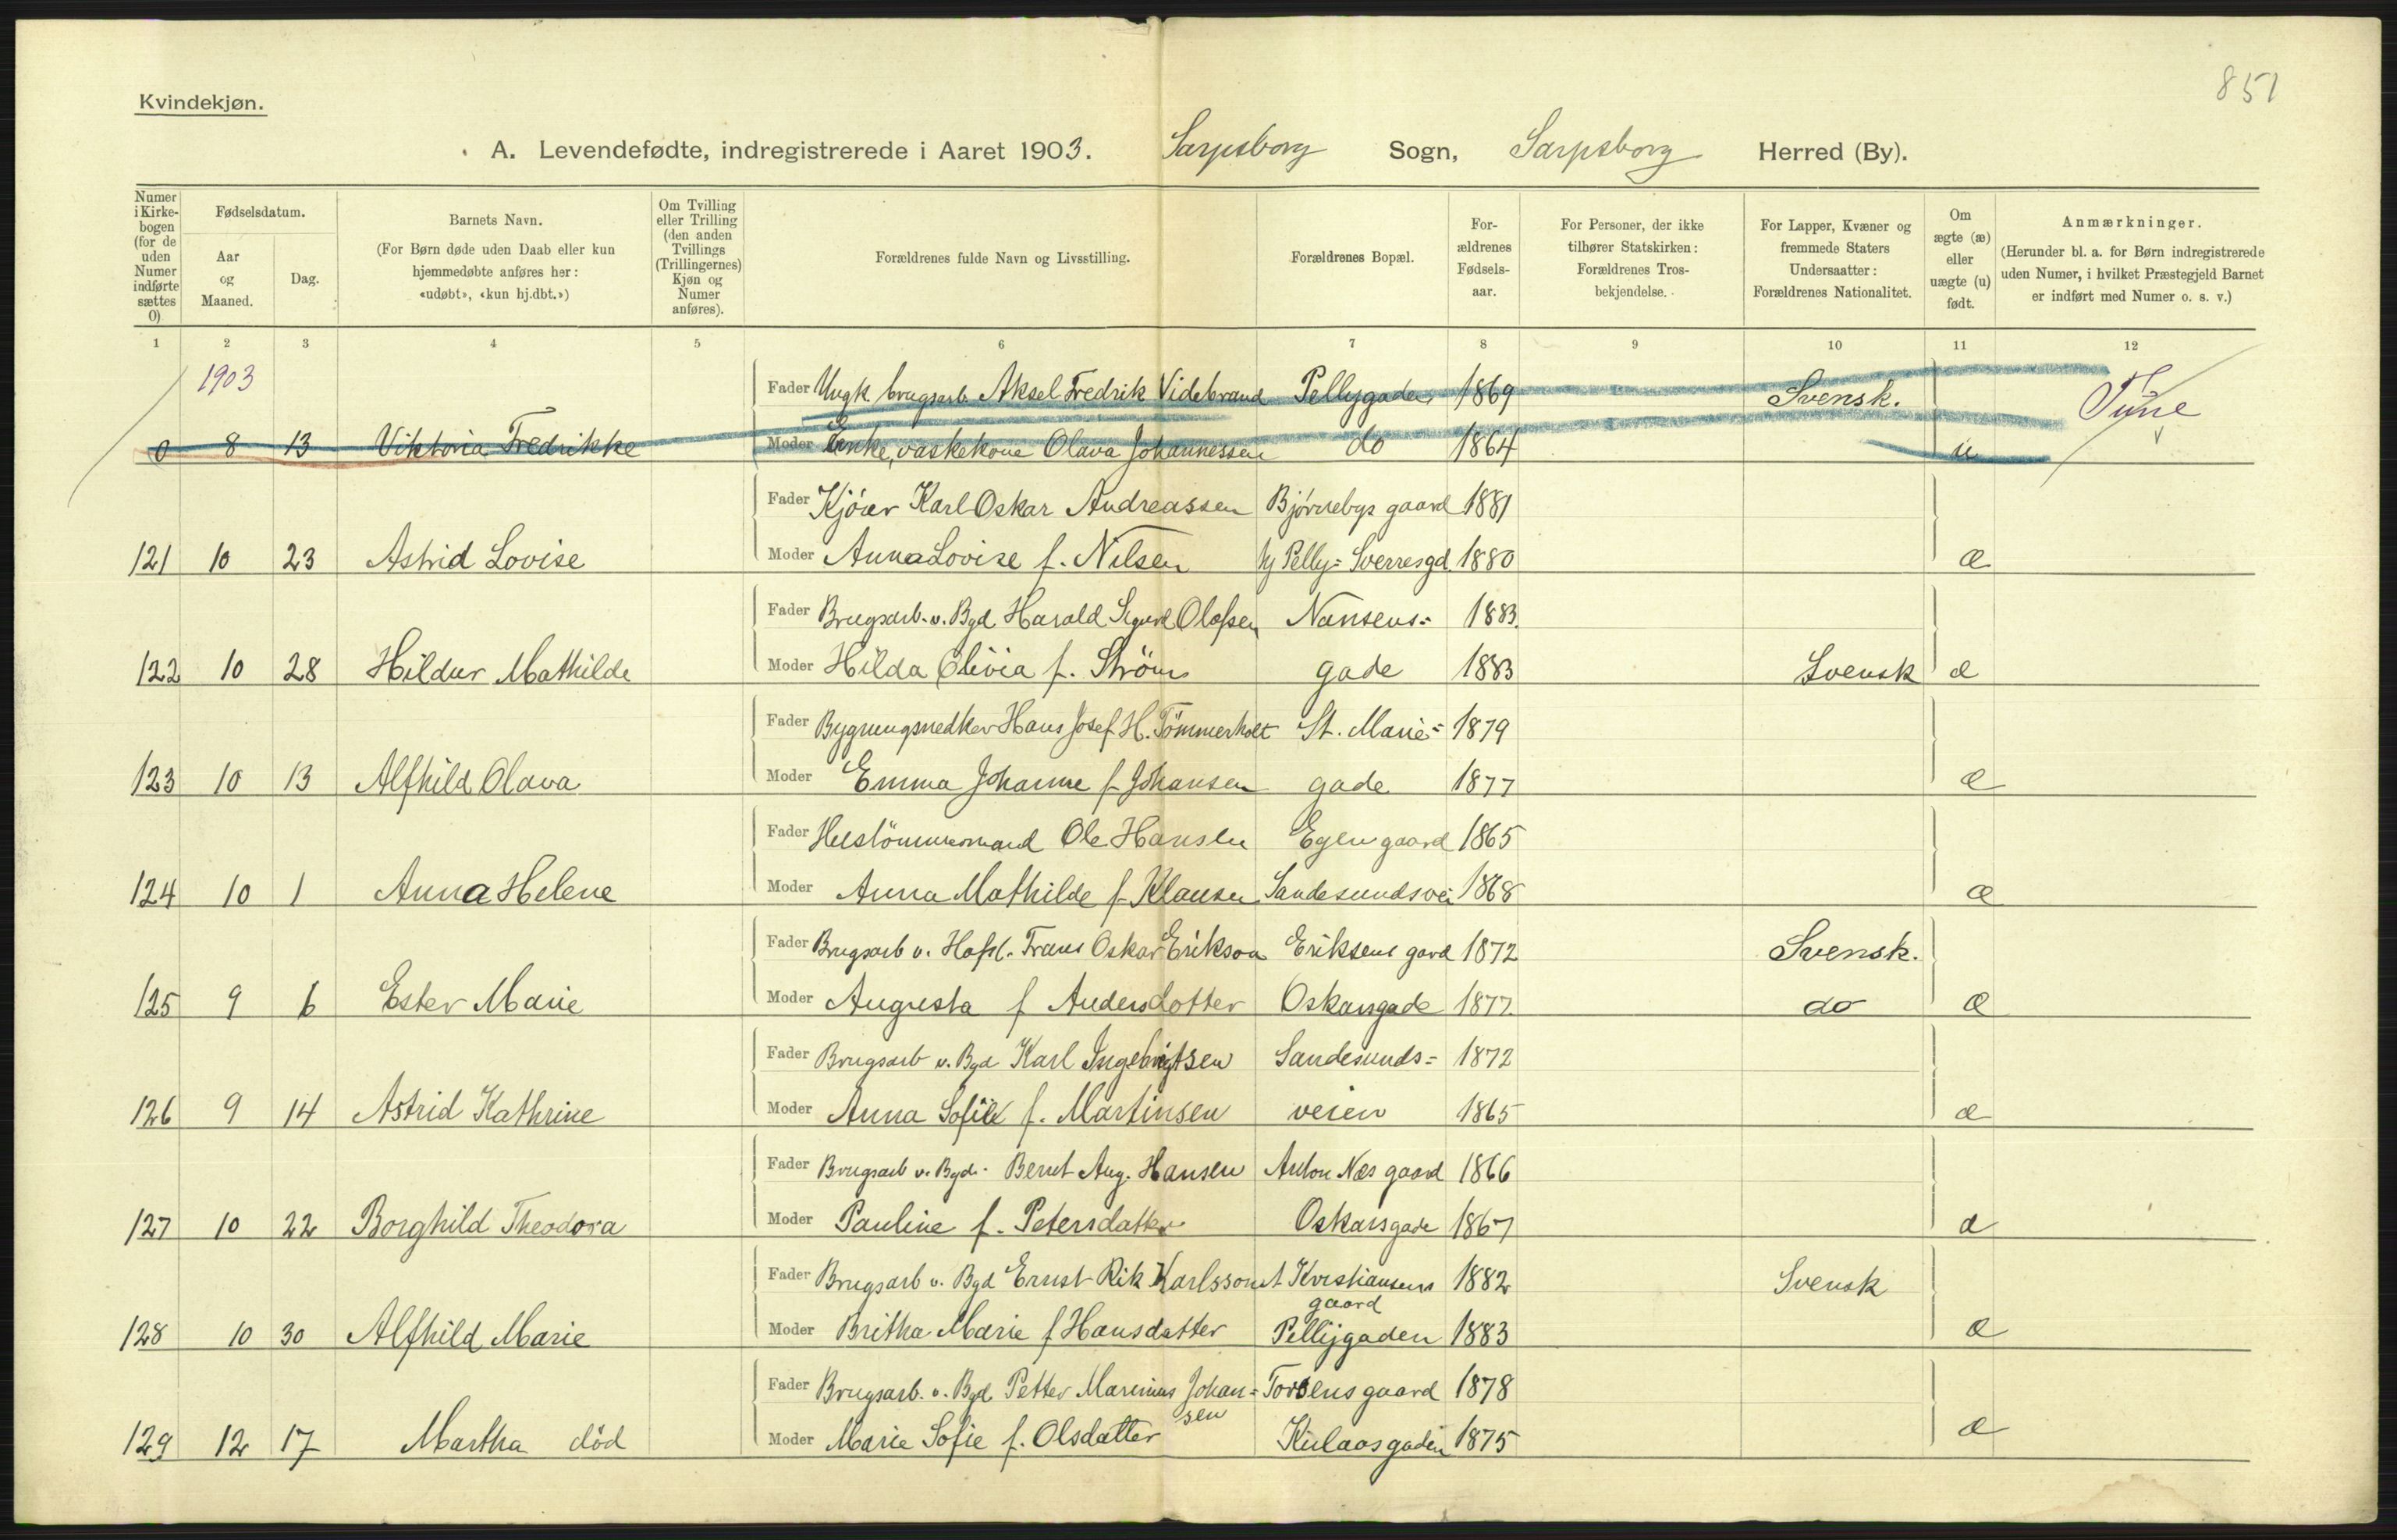 851
Kvindekjøn.
A. Levendefødte, indregistrerede i Aaret 1903. Sarpsborg Sogn, Sarpsborg Herred (By).
Numer i Kirkebogen (for de uden Numer indførte sættes 0)
Fødselsdatum.
Aar og Maaned.
Dag.
Barnets Navn.
(For Børn døde uden Daab eller kun hjemmedøbte anføres her: «udøbt», «kun hj.dbt.»)
Om Tvilling eller Trilling (den anden Tvillings (Trillingernes) Kjøn og Numer anføres).
Forældrenes fulde Navn og Livsstilling.
Forældrenes Bopæl.
Forældrenes Fødselsaar.
For Personer, der ikke tilhører Statskirken: Forældrenes Trosbekjendelse.
For Lapper, Kvæner og fremmede Staters Undersaatter: Forældrenes Nationalitet.
Om ægte (æ) eller uægte (u) født.
Anmærkninger.
(Herunder bl. a. for Børn indregistrerede uden Numer, i hvilket Præstegjeld Barnet er indført med Numer o. s. v.)
1 2 3 4 5 6 7 8 9 10 11 12
1903
Fader Ungk. brugsarb. Aksel Fredrik Videbrand Pellygaden 1869 Svensk. Tune
0 8 13 Viktoria Fredrikke Moder Enke, vaskekone Olava Johannessen do 1864 u
Fader Kjører Karl Oskar Andreassen Bjørnebys gaard 1881
121 10 23 Astrid Lovise Moder Anna Lovise f. Nilsen Hj Pelly= Sverresgd. 1880 æ
Fader Brugsarb. v. Bgd Harald Sigurd Olafsen Nansens= 1883.
122 10 28 Hildur Mathilde Moder Hilda Olivia f. Strøm gade 1883 Svensk æ
Fader Bygningsnedker Hans Josef H. Tømmerholt St. Marie= 1879
123 10 13 Alfhild Olava Moder Emma Johanne f. Johansen gade 1877 æ
Fader Hustømmermand Ole Hansen Egen gaard 1865
124 10 1 Anna Helene Moder Anna Mathilde f. Klausen Sandesundsvei 1868 æ
Fader Brugsarb v. Hafsl. Frans Oskar Erikson Eriksens gard 1872 Svensk.
125 9 6 Ester Marie Moder Augusta f Andersdotter Oskarsgade 1877. do æ
Fader Brugsarb v. Bgd Karl Ingebrigtsen Sandesunds= 1872
126 9 14 Astrid Kathrine Moder Anna Sofie f. Martinsen veien 1865 æ
Fader Brugsarb v. Bgd. Bernt Aug. Hansen Anton Næs gaard 1866
127 10 22 Borghild Theodora Moder Pauline f. Petersdatter Oskarsgade 1867 æ
Fader Brugsarb v. Bgd Ernst Rik Karlsson Kristiansens gaard 1882 Svensk
128 10 30 Alfhild Marie Moder Britha Marie f Hansdatter Pellygaden 1883 æ
Fader Brugsarb. v. Bgd. Petter Marinius Johan= sen Torsens gaard 1878
129 12 17 Martha død Moder Marie Sofie f. Olsdatter Kulaasgaden 1875 æ